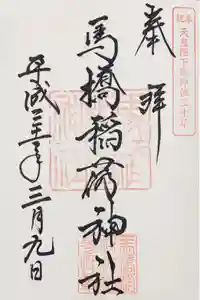 奉祝
天皇陛下御即位三十年
奉拝
馬橋稲荷神社
平成三十一年三月九日